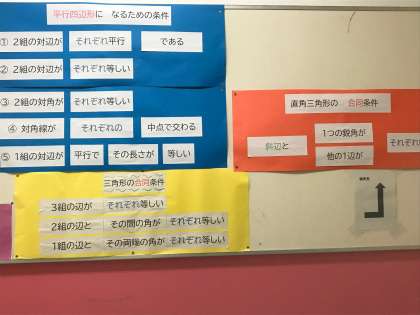 平行四辺形に なるための条件
① 2組の対辺が それぞれ平行 である
② 2組の対辺が それぞれ等しい
③ 2組の対角が それぞれ等しい
④ 対角線が それぞれの 中点で交わる
⑤ 1組の対辺が 平行で その長さが 等しい
三角形の合同条件
3組の辺が それぞれ等しい
2組の辺と その間の角が それぞれ等しい
1組の辺と その両端の角が それぞれ等しい
直角三角形の 合同条件
斜辺と
1つの鋭角が
他の1辺が
それぞれ